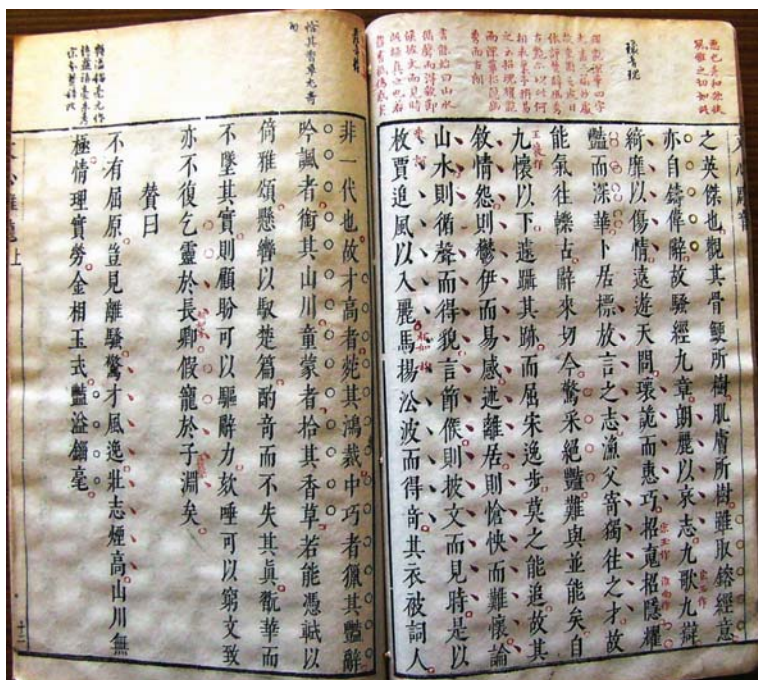 文心雕龍
之英傑也觀其骨鯁所樹肌膚所樹雖取鎔經意
亦自鑄偉辭故騷經九章朗麗以哀志九歌九辯
宋玉作
綺靡以傷情遠遊天問瓌詭而惠巧招䰟招隱耀
宋玉作
淮南作
豔而深華卜居標放言之志漁父寄獨往之才故
能氣往轢古辭來切今驚采絕豔難與並能矣自
王褒作
九懷以下遽躡其跡而屈宋逸步莫之能追故其
敘情怨則鬱伊而易感述離居則愴怏而難懷論
山水則循聲而得貌言節候則披文而見時是以
枚賈追風以入麗馬揚沿波而得奇其衣被詞人
非一代也故才高者菀其鴻裁中巧者獵其豔辭
吟諷者銜其山川童蒙者拾其香草若能憑軾以
倚雅頌懸轡以馭楚篇酌奇而不失其真翫華而
不墜其實則顧盼可以驅辭力欬唾可以窮文致
亦不復乞靈於長卿假寵於子淵矣
贊曰
不有屈原豈見離騷驚才風逸壯志煙高山川無
極情理實勞金相玉式豔溢錙毫
文心雕龍上
十二